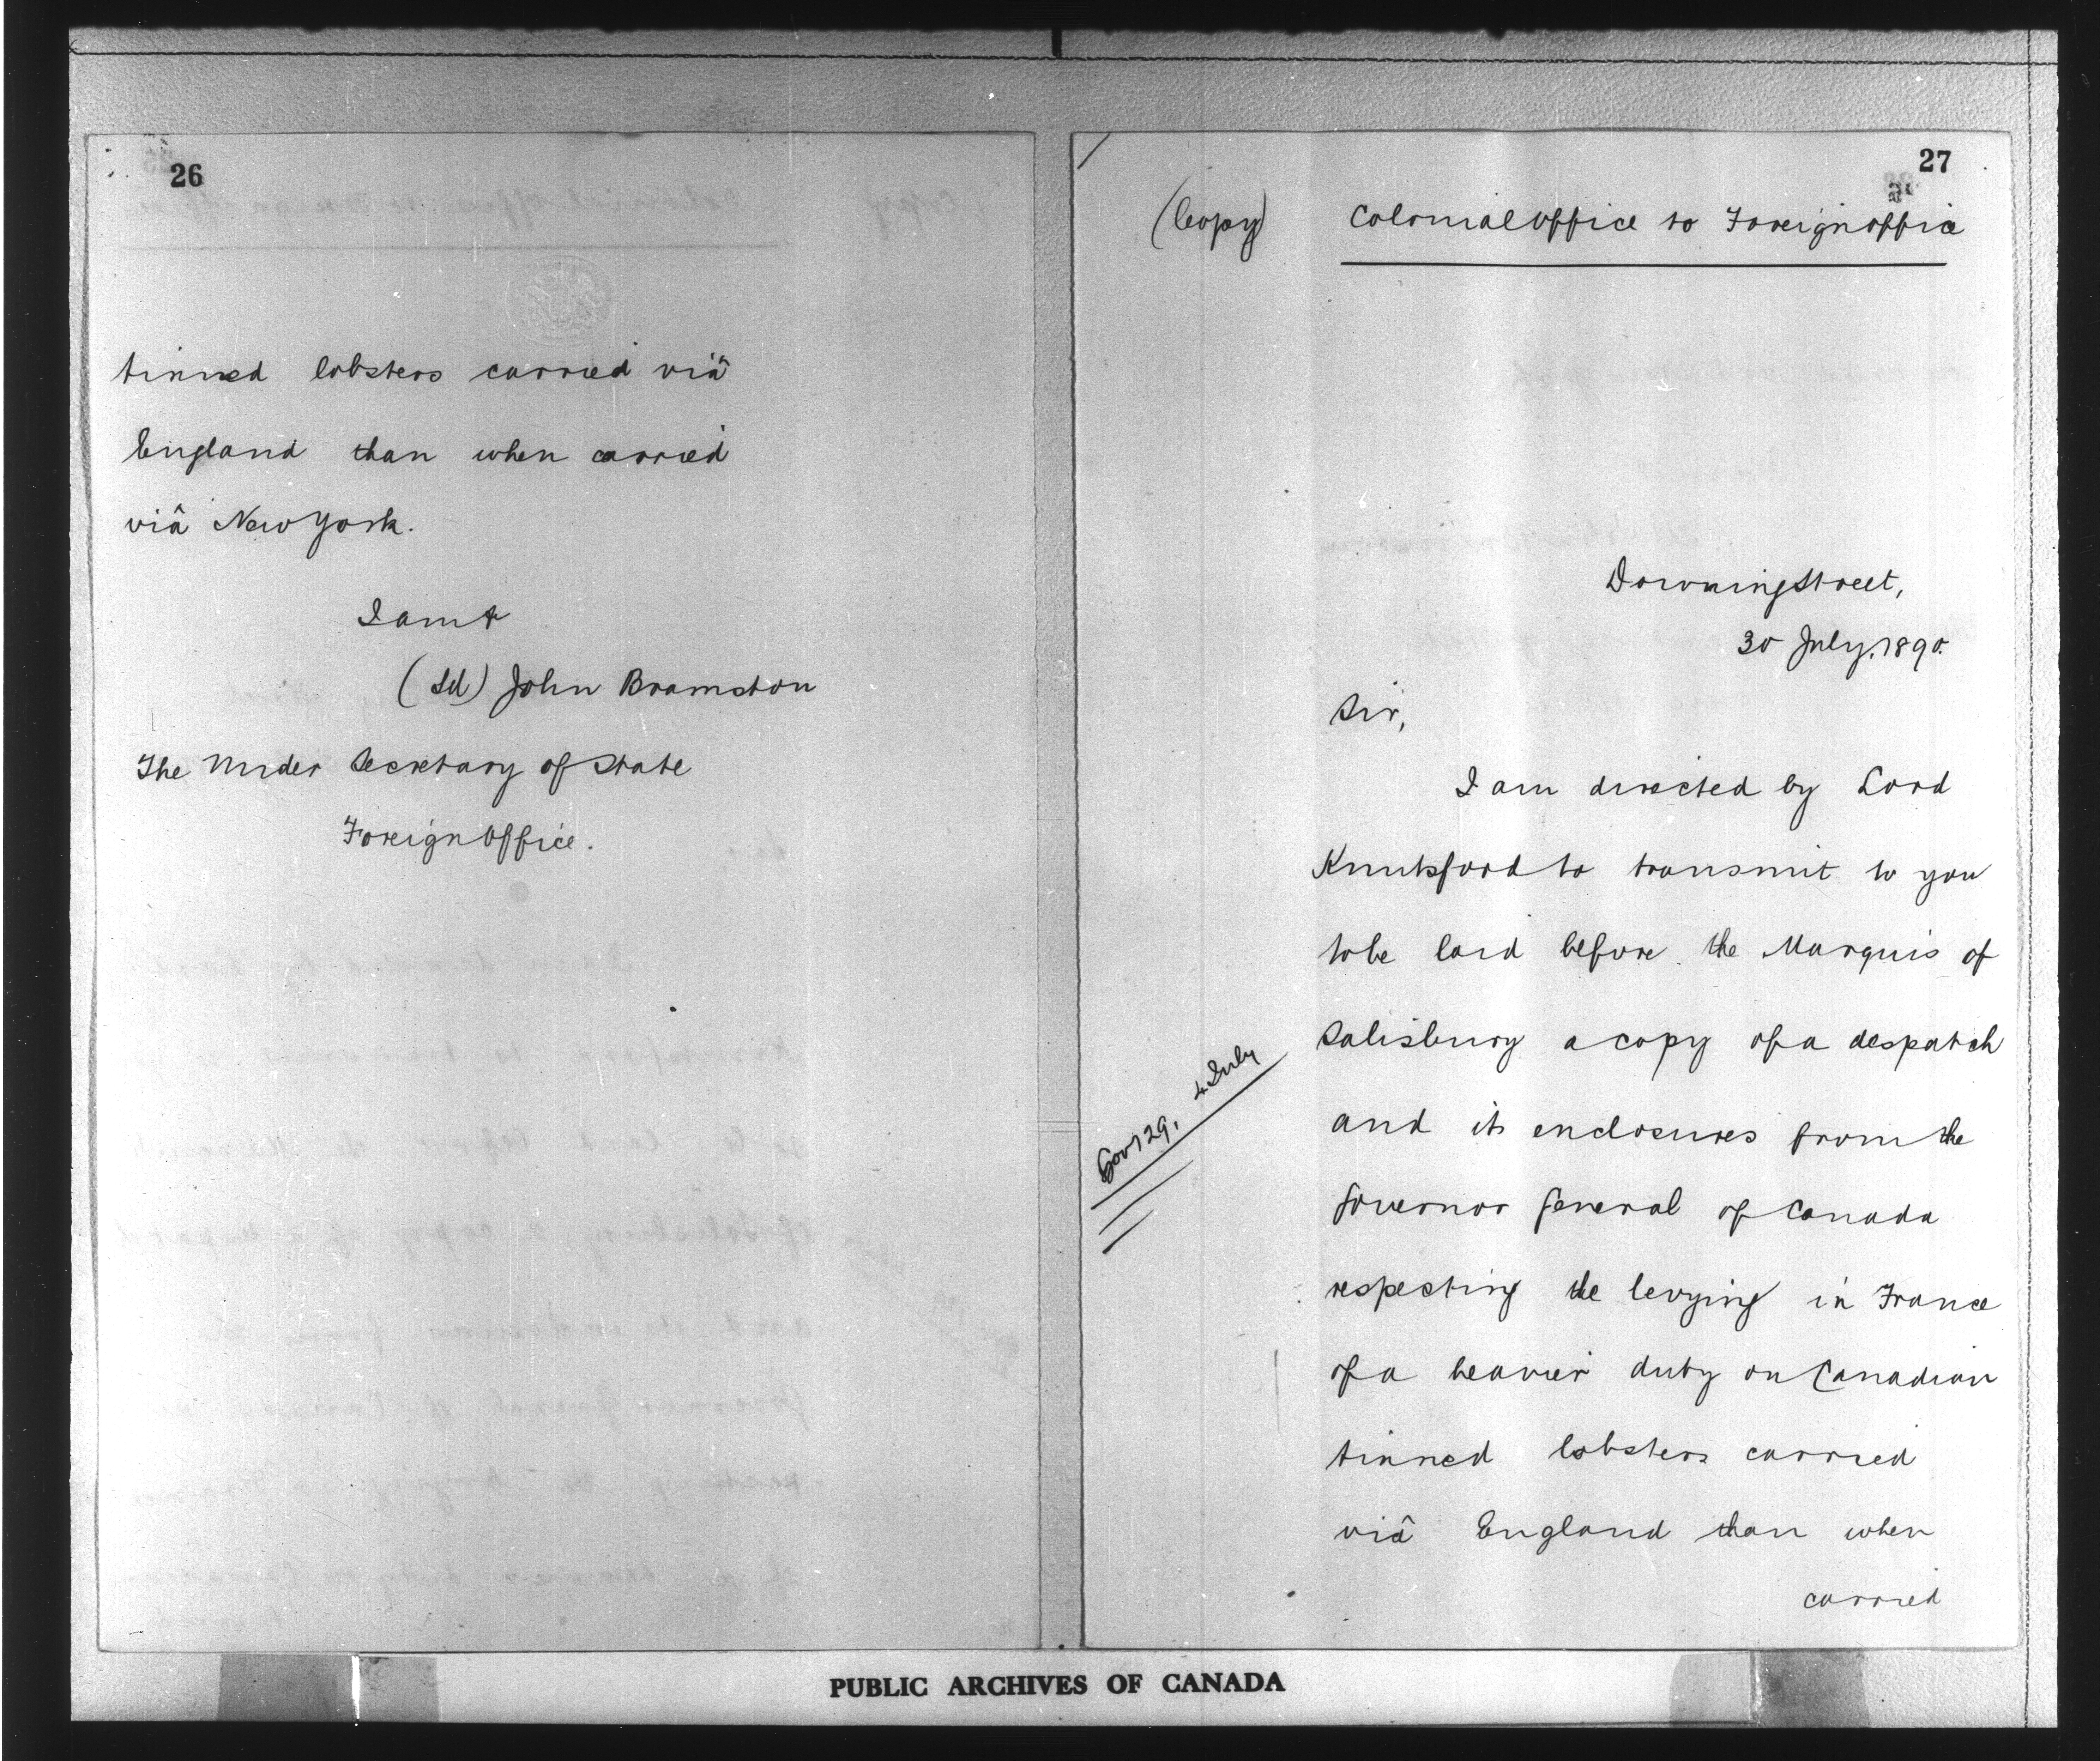 26
tinned lobsters carried viâ
England than when carried
viâ New York.
I am &
(Sd) John Bramston
The Under Secretary of State
Foreign Office.
27
(Copy) Colonial Office to Foreign Office
Downing Street,
30 July, 1890.
Sir,
I am directed by Lord
Knutsford to transmit to you
to be laid before the Marquis of
Salisbury a copy of a despatch
Gov 129, 4 July
and its enclosures from the
Governor General of Canada
respecting the levying in France
of a heavier duty on Canadian
tinned lobsters carried
viâ England than when
carried
PUBLIC ARCHIVES OF CANADA